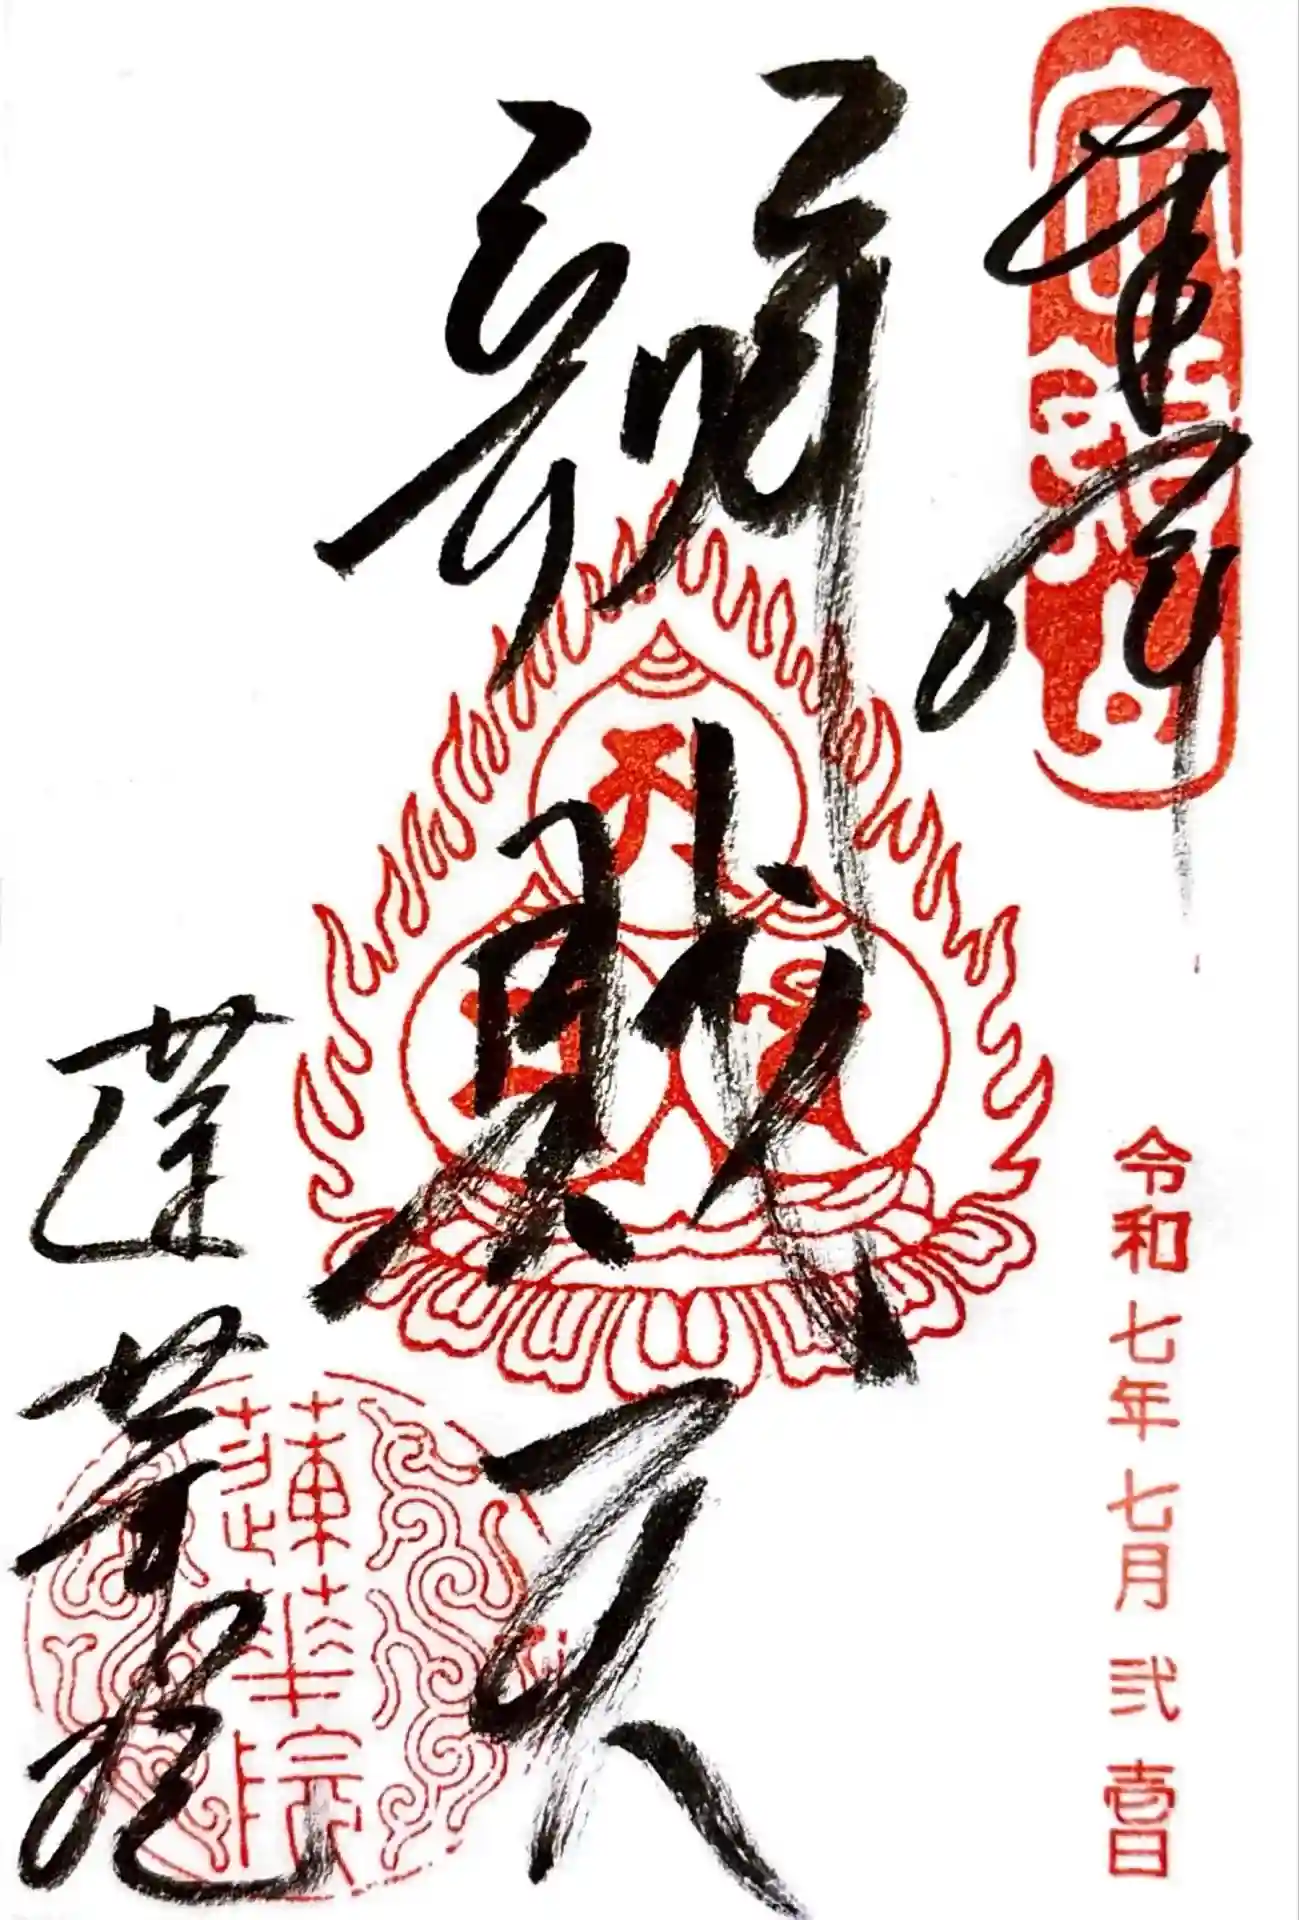 奉拝
令和七年七月弐壱日
辯財天
蓮華院
蓮華院